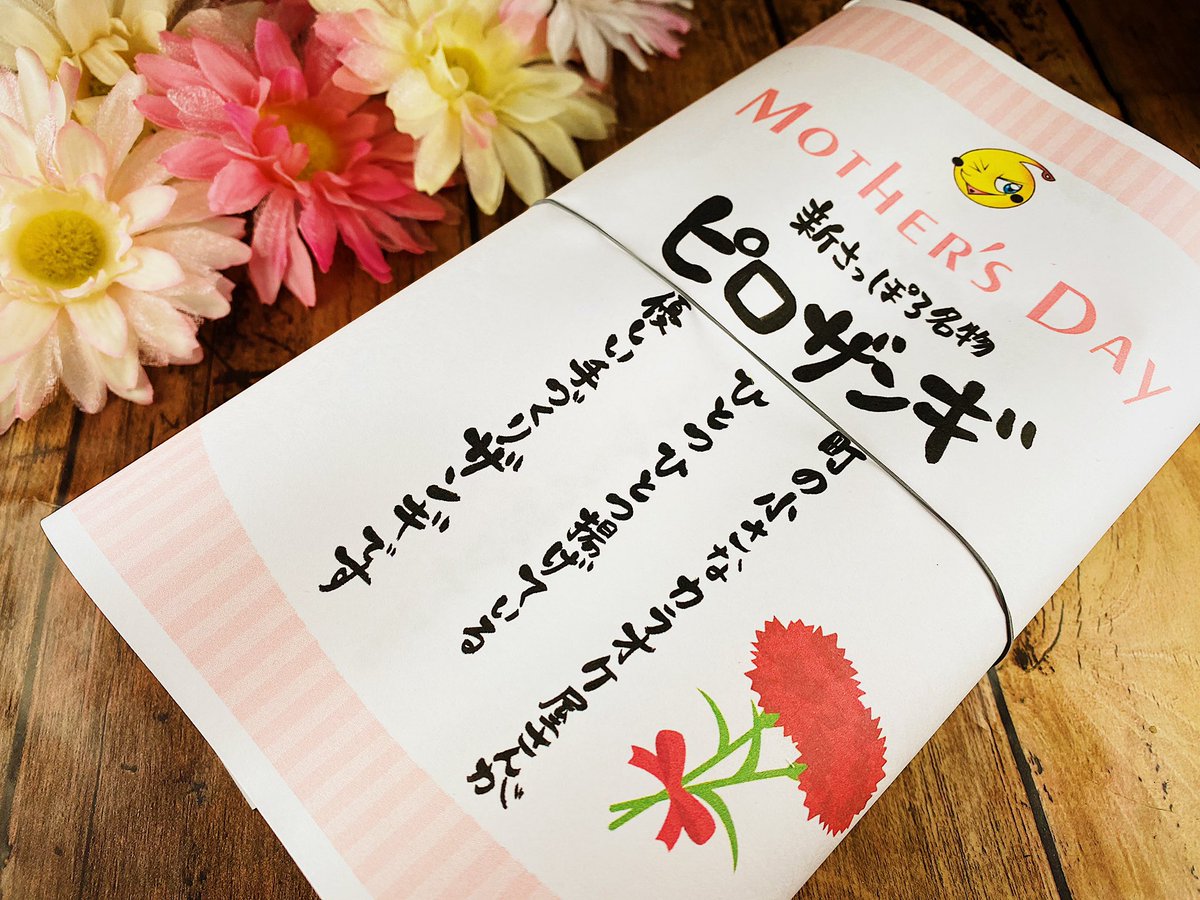 MOTHER'S DAY
新さっぽろ名物
ピロザンギ
町の小さなカラオケ屋さんが
ひとつひとつ揚げている
優しい手づくりザンギです